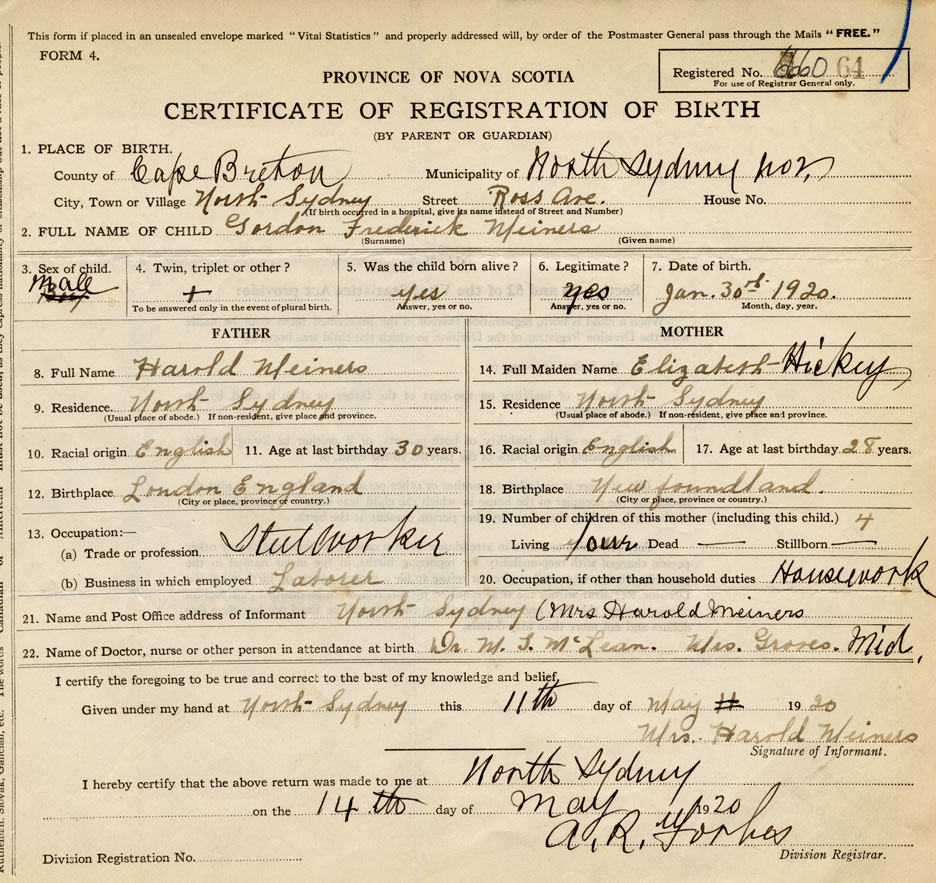 This form if placed in an unsealed envelope marked "Vital Statistics" and properly addressed will, by order of the Postmaster General pass through the Mails "FREE."
FORM 4.
Registered No. 660 64
For use of Registrar General only.
PROVINCE OF NOVA SCOTIA
CERTIFICATE OF REGISTRATION OF BIRTH
(BY PARENT OR GUARDIAN)
1. PLACE OF BIRTH.
County of Cape Breton Municipality of North Sydney
City, Town or Village North Sydney Street Ross Ave. House No.
(If birth occurred in a hospital, give its name instead of Street and Number)
2. FULL NAME OF CHILD Gordon Frederick Meiners
(Surname) (Given name)
3. Sex of child. Male Boy
4. Twin, triplet or other? +
To be answered only in the event of plural birth.
5. Was the child born alive? yes
Answer, yes or no.
6. Legitimate? yes
Answer, yes or no.
7. Date of birth. Jan. 30 1920.
Month, day, year.
FATHER
8. Full Name Harold Meiners
9. Residence. North Sydney
(Usual place of abode.) If non-resident, give place and province.
10. Racial origin English 11. Age at last birthday 30 years.
12. Birthplace London England
(City or place, province or country.)
13. Occupation:—
(a) Trade or profession Steelworker
(b) Business in which employed Laborer
MOTHER
14. Full Maiden Name Elizabeth Hickey
15. Residence North Sydney
(Usual place of abode.) If non-resident, give place and province.
16. Racial origin English 17. Age at last birthday 28 years.
18. Birthplace Newfoundland.
(City or place, province or country.)
19. Number of children of this mother (including this child.) 4
Living four Dead — Stillborn —
20. Occupation, if other than household duties Housework
21. Name and Post Office address of Informant North Sydney (Mrs Harold Meiners
22. Name of Doctor, nurse or other person in attendance at birth Dr. M. T. McLean. Mrs. Groves. Mid.
I certify the foregoing to be true and correct to the best of my knowledge and belief,
Given under my hand at North Sydney this 11th day of May 11 1920
Mrs. Harold Meiners
Signature of Informant.
I hereby certify that the above return was made to me at North Sydney
on the 14th day of May 1920
A. R. Forbes
Division Registration No. Division Registrar.